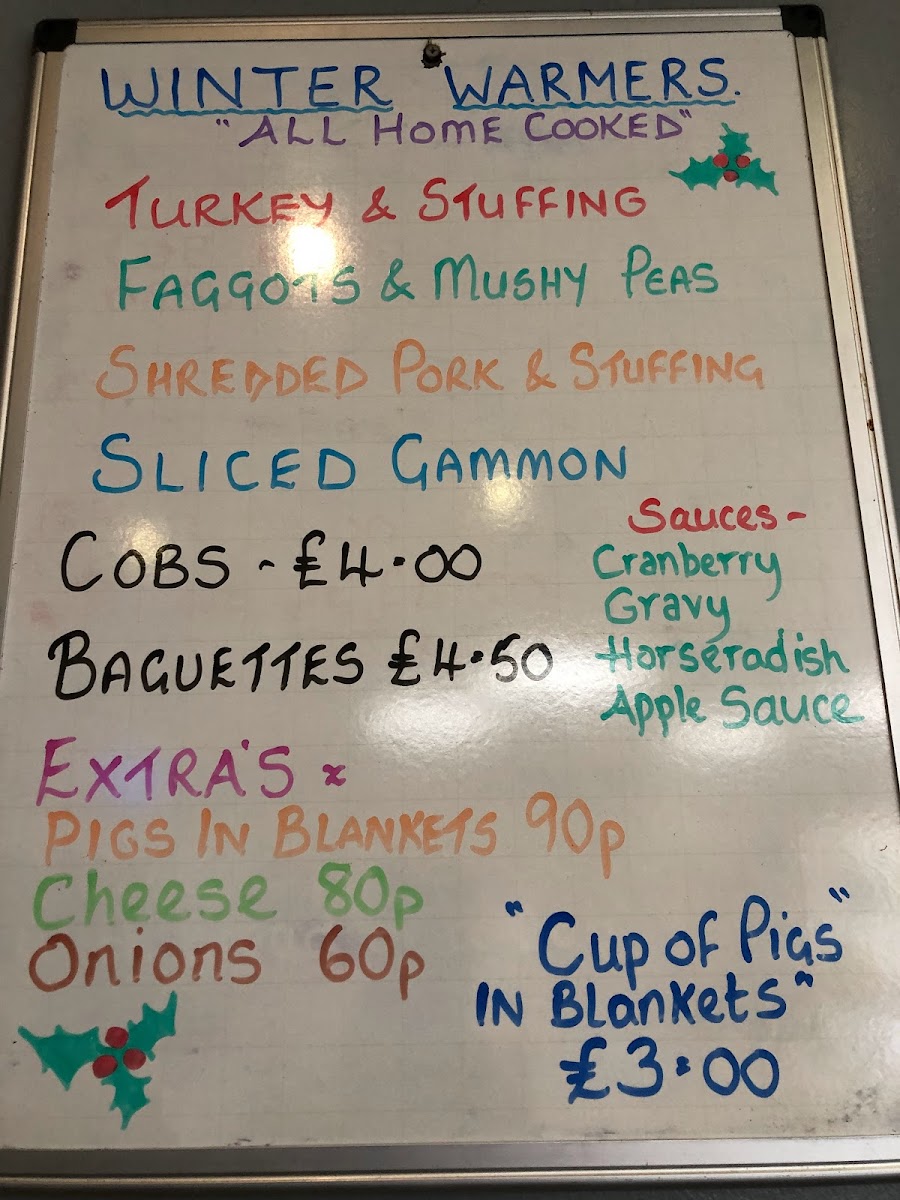 WINTER WARMERS.
"ALL HOME COOKED"
TURKEY & STUFFING
FAGGOTS & MUSHY PEAS
SHREDDED PORK & STUFFING
SLICED GAMMON
COBS - £4.00
BAGUETTES £4.50
Sauces -
Cranberry
Gravy
Horseradish
Apple Sauce
EXTRA'S x
PIGS IN BLANKETS 90p
Cheese 80p
Onions 60p
"Cup of Pigs"
IN BLankets"
£3.00